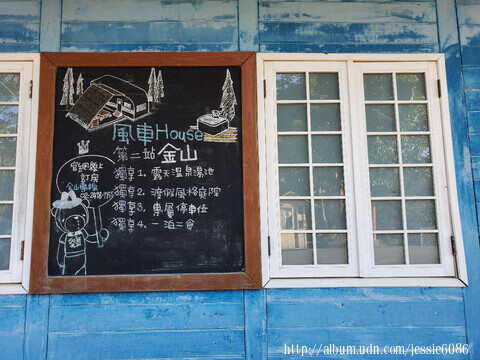 風車House
第二站 金山
獨享1. 露天溫泉湯池
獨享2. 渡假風格庭院
獨享3. 專屬停車位
獨享4. 一泊二食
官網線上
訂房
http://album.udn.com/jessie6086